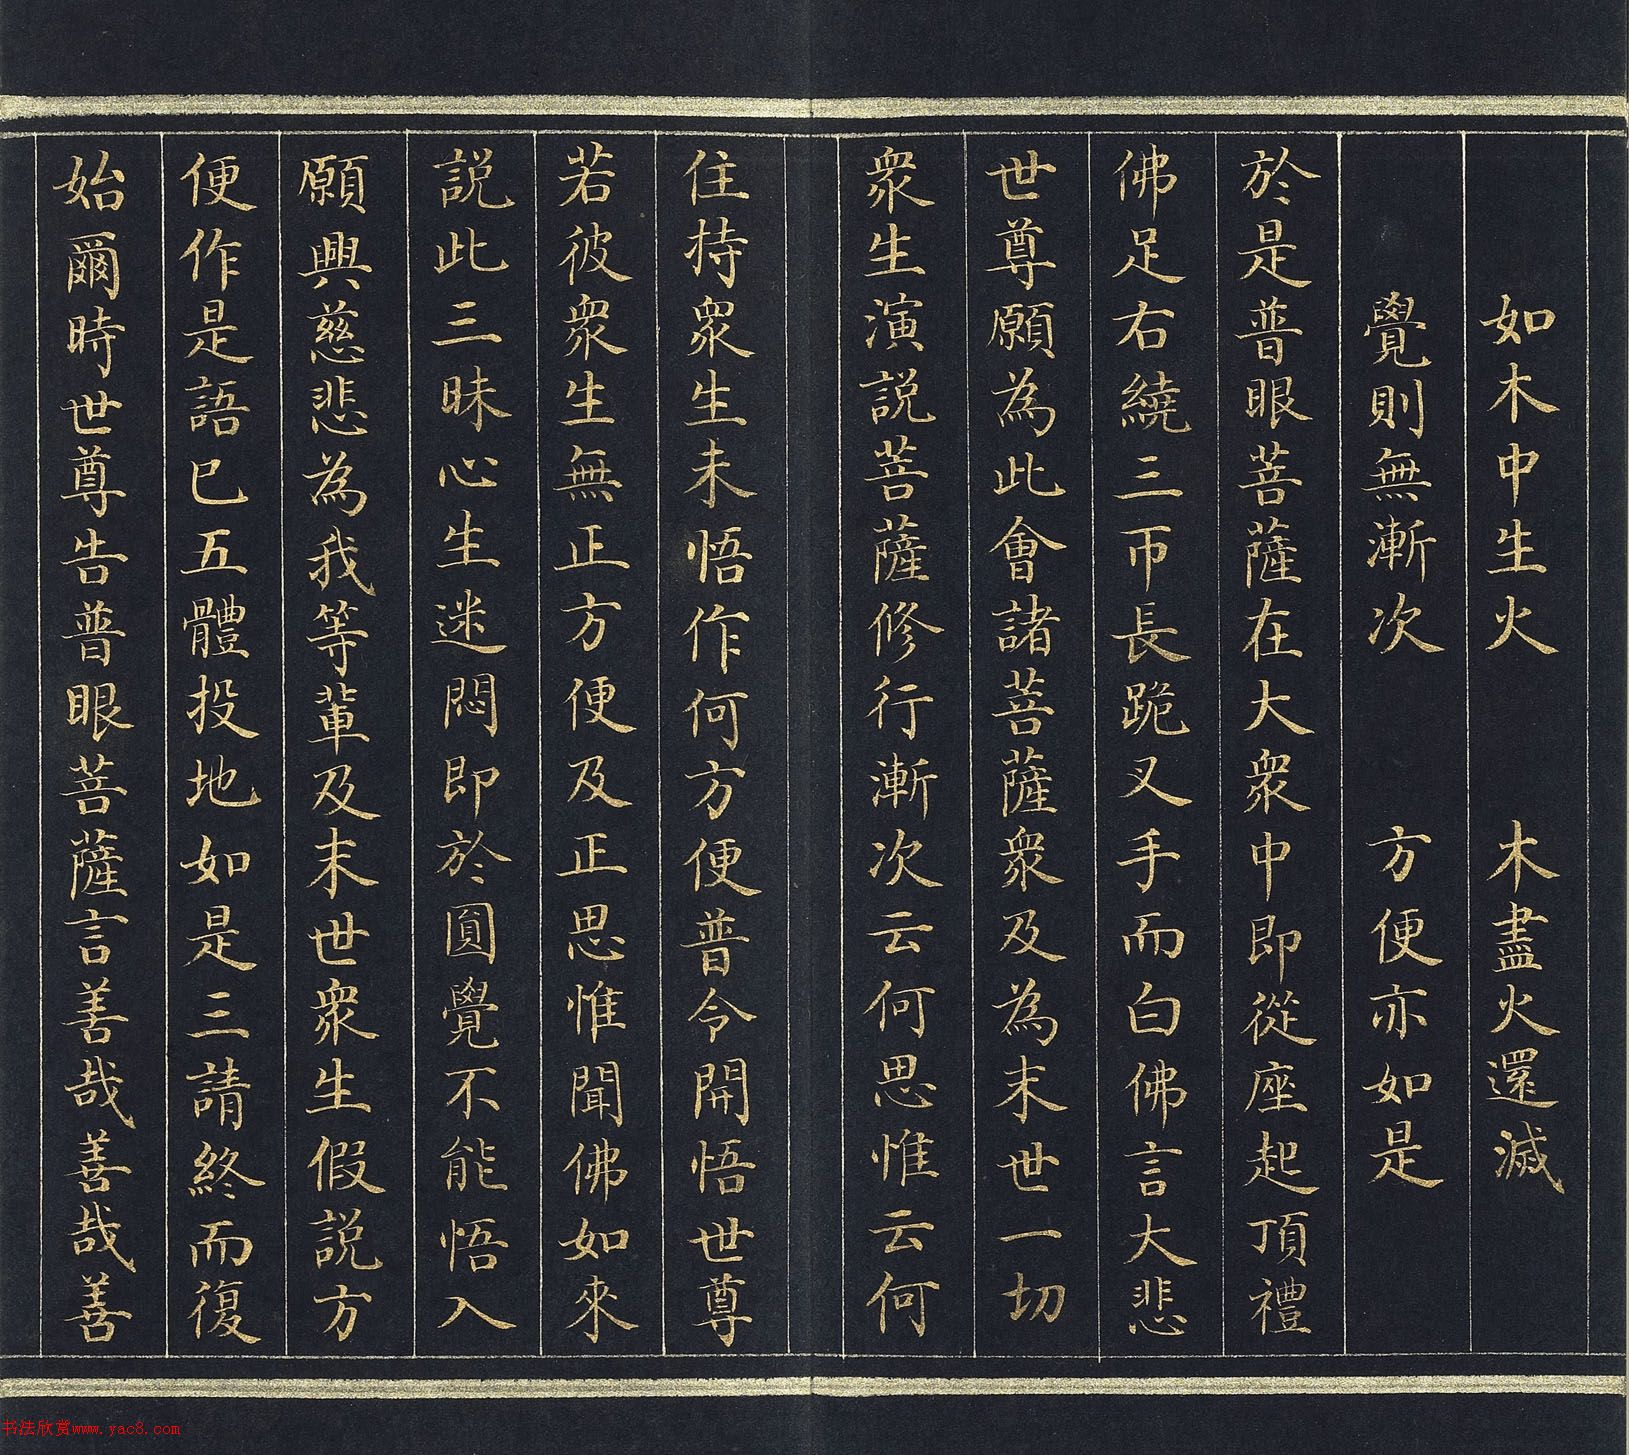 如木中生火　木盡火還滅
覺則無漸次　方便亦如是
於是普眼菩薩在大衆中即從座起頂禮
佛足右繞三帀長跪叉手而白佛言大悲
世尊願為此會諸菩薩衆及為末世一切
衆生演説菩薩修行漸次云何思惟云何
住持衆生未悟作何方便普令開悟世尊
若彼衆生無正方便及正思惟聞佛如來
説此三昧心生迷悶即於圓覺不能悟入
願興慈悲為我等輩及末世衆生假説方
便作是語已五體投地如是三請終而復
始爾時世尊告普眼菩薩言善哉善哉善
书法欣赏www.yac8.com